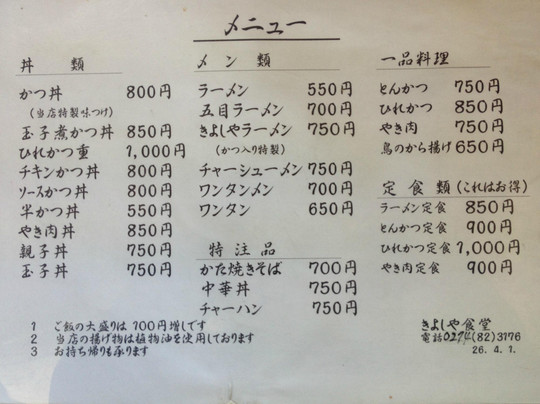 メニュー
丼類
かつ丼 800円
(当店特製味つけ)
玉子煮かつ丼 850円
ひれかつ重 1,000円
チキンかつ丼 800円
ソースかつ丼 800円
半かつ丼 550円
やき肉丼 850円
親子丼 750円
玉子丼 750円
メン類
ラーメン 550円
五目ラーメン 700円
きよしやラーメン 750円
(かつ入り特製)
チャーシューメン 750円
ワンタンメン 700円
ワンタン 650円
特注品
かた焼きそば 700円
中華丼 750円
チャーハン 750円
一品料理
とんかつ 750円
ひれかつ 850円
やき肉 750円
鳥のから揚げ 650円
定食類(これはお得)
ラーメン定食 850円
とんかつ定食 900円
ひれかつ定食 1,000円
やき肉定食 900円
1 ご飯の大盛りは100円増しです
2 当店の揚げ物は植物油を使用しております
3 お持ち帰りも承ります
きよしや食堂
電話0274(82)3176
26.4.1.